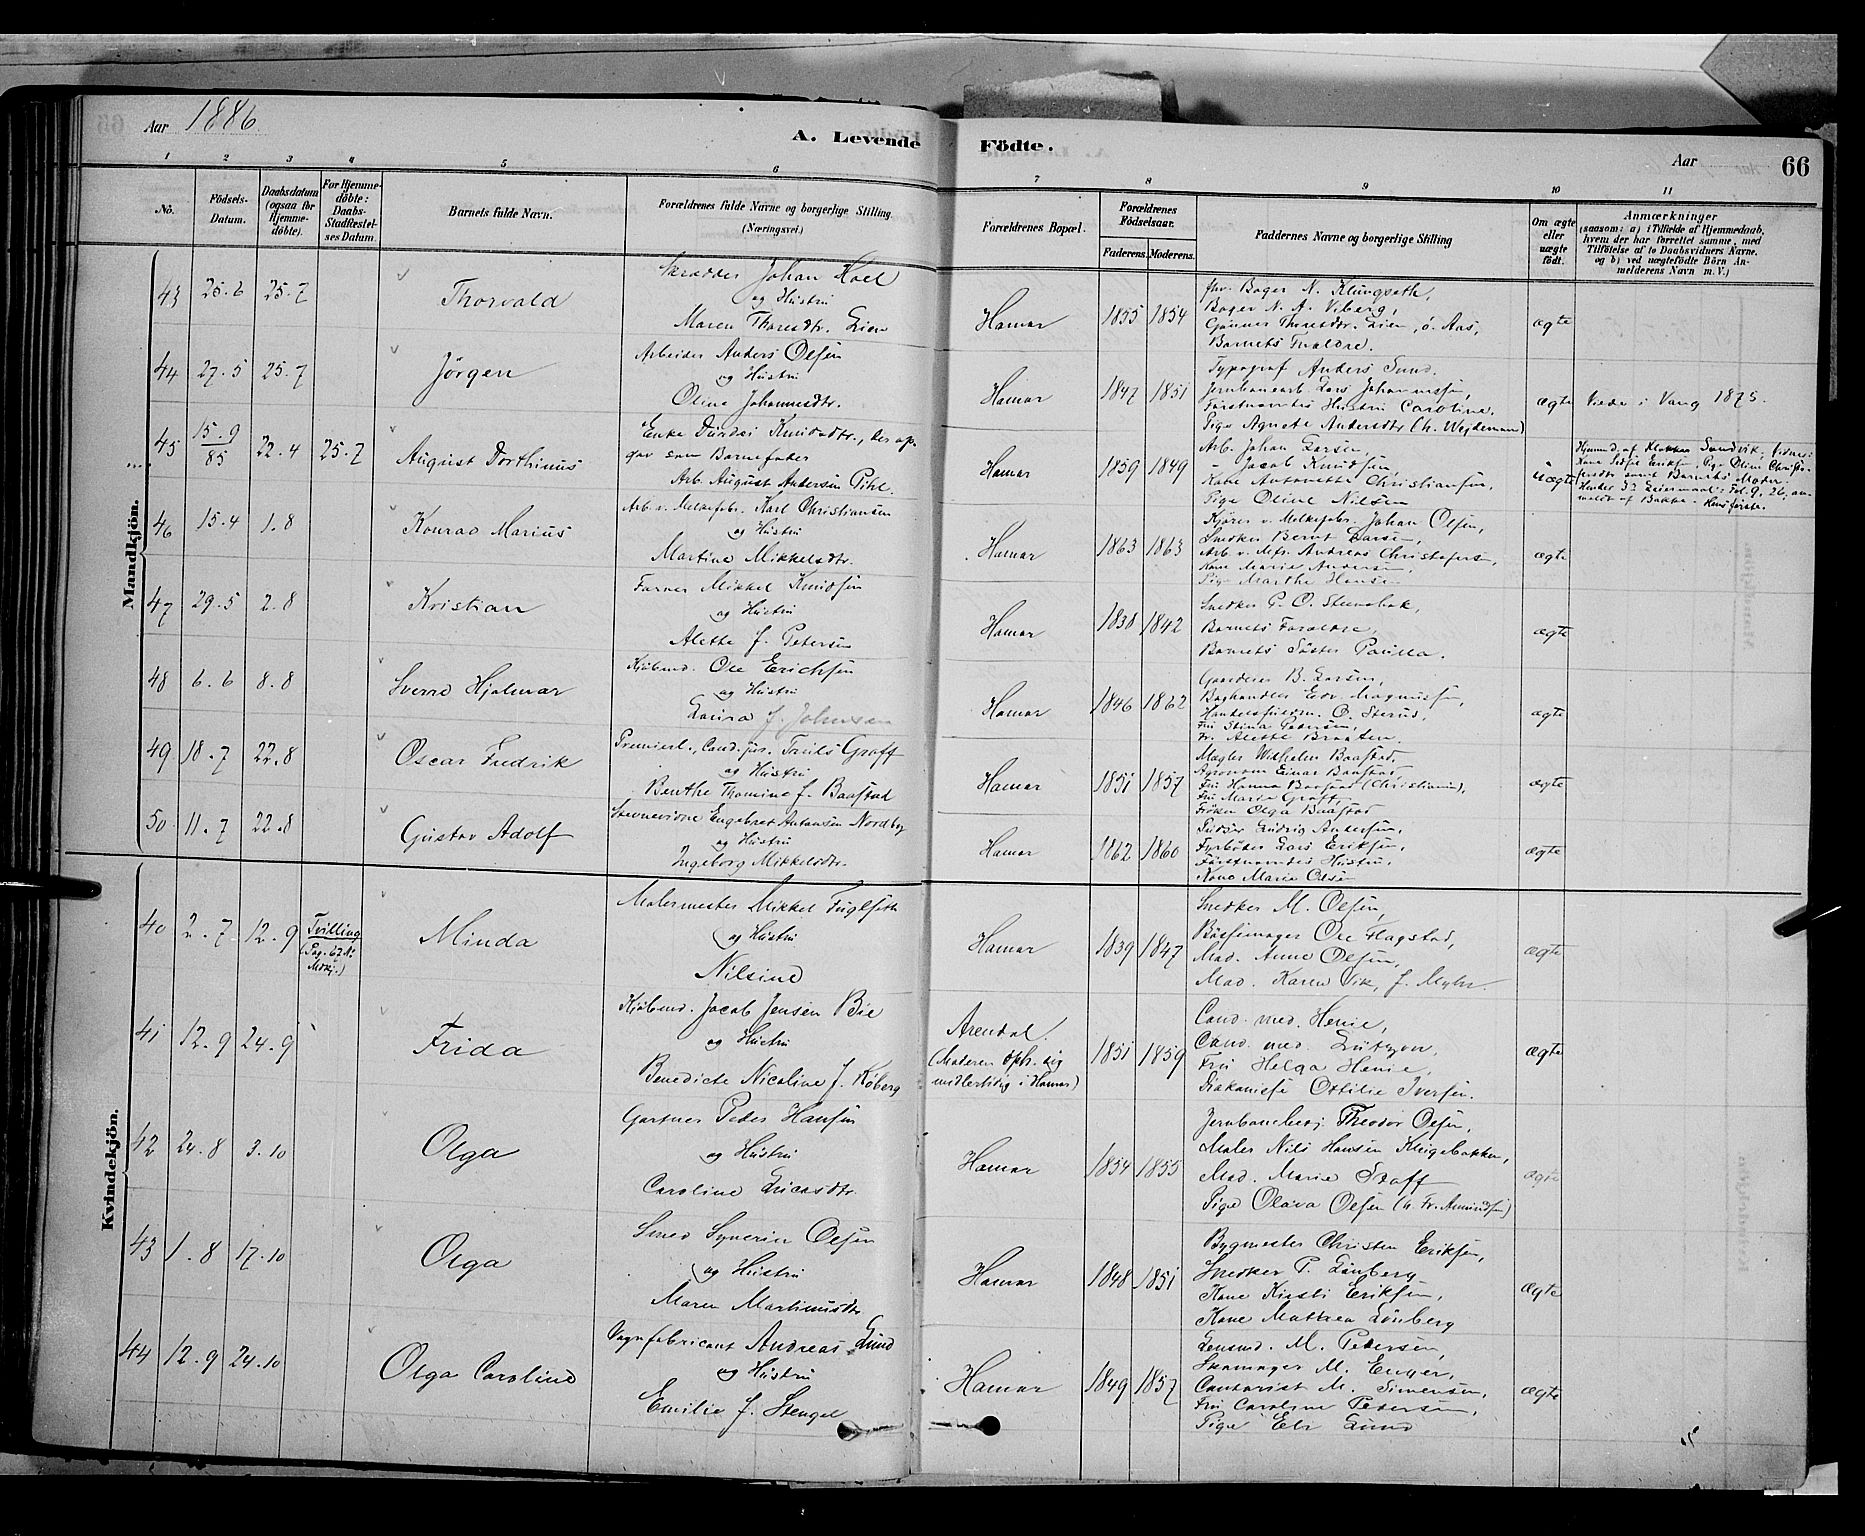 Aar 1886.
A. Levende Födte.
Aar
66
1 2 3 4 5 6 7 8 9 10 11
No.
Födsels-Datum.
Daabsdatum (ogsaa for Hjemme-döbte).
For Hjemme-döbte: Daabs-Stadfæstel-ses Datum.
Barnets fulde Navn.
Forældrenes fulde Navne og borgerlige Stilling (Næringsvei.)
Forældrenes Bopæl.
Forældrenes Födselsaar.
Faderens. Moderens.
Faddernes Navne og borgerlige Stilling
Om ægte eller uægte födt.
Anmærkninger
(saasom: a) i Tilfælde af Hjemmedaab, hvem der har forrettet samme, med Tilföielse af to Daabsvidners Navne, og b) ved uægtefödte Börn An-melderens Navn m. V.)
Mandkjön.
43 25.6 25.7 Thorvald
Skrædder Johan Hoel
og Hustru
Maren Thoresdtr. Lien
Hamar 1855 1854
fhv. Bager N. Klungseth,
Bager N. A. Viberg,
Gunner Thoresdtr. Lien, ö. Aas,
Barnets Forældre.
ægte
44 27.5 25.7 Jörgen
Arbeider Anders Olsen
og Hustru
Oline Johannesdtr.
Hamar 1847 1851
Typograf Anders Sund.
Jernbanearb. Lars Johannessen,
Förstnævntes Hustru Caroline.
Pige Agnete Andersdtr (h. Wejdemann)
ægte
Viede i Vang 1875.
45 15.9/85 22.4 25.7 August Dorthinus
Enke Durdei Knudsdtr., der op-
gav som Barnefader
Arb. August Andersen Pihl.
Hamar 1859 1849
Arb. Johan Larsen,
- Jacob Knudsen,
Kone Antonette Christiansen,
Pige Oline Nilsen
uægte
Hjemmd. af Klokker Sandvik. Vidner:
46 15.4 1.8 Konrad Marius
Arb. v. Melkefabr. Karl Christiansen
og Hustru
Martine Mikkelsdtr.
Hamar 1863 1863
Kjörer v. Melkefabr. Johan Olsen,
Snedker Bernt Larsen,
Arb. v. Mfr. Andreas Christofersen
Kone Marie Andersen,
Pige Marthe Hansen
ægte
47 29.5 2.8 Kristian
Farver Mikkel Knudsen
og Hustru
Alette f. Petersen
Hamar 1838 1842
Snedker P. O. Steensbak,
Barnets Forældre,
Barnets Söster Paulla.
ægte
48 6.6 8.8 Sverre Hjalmar
Kjöbmd. Ole Erichsen
og Hustru
Laura f. Johnsen
Hamar 1846 1862
Gaardeier B. Larsen,
Boghandler Edv. Magnussen,
Handelsfuldm. O. Sterud,
Fru Stina Pedersen,
Fr. Alette Braaten.
ægte
49 18.7 22.8 Oscar Fredrik
Premierl., Cand. jur. Truls Graff
og Hustru
Benthe Thomine f. Baastad
Hamar 1851 1857
Mægler Wilhelm Baastad,
Agronom Einar Baastad,
Fru Hanna Baastad (Christiania),
Fru Marie Graff,
Fröken Olga Baastad
ægte
50. 11.7 22.8 Gustav Adolf
Stevnevidne Engebret Antonsen Nordby
og Hustru
Ingeborg Mikkelsdtr.
Hamar 1862 1860
Pudser Ludvig Andersen,
Fyrböder Lars Eriksen,
Förstnævntes Hustru,
Kone Marie Olsen
ægte
Kvindekjön.
40 2.7 12.9 Tvilling Minda
Malermester Mikkel Fuglseth
og Hustru
Nilsine
Hamar 1839 1847
Snedker M. Olsen,
Bössemager Ole Flagstad,
Mad. Anne Olsen,
Mad. Karen Vik, f. Myhr.
ægte
41 12.9 24.9 Frida
Kjöbmd. Jacob Jensen Bie
og Hustru
Benedicte Nicoline f. Köberg
Arendal.
(Moderen oph. sig
midlertidig i Hamar)
1851 1859
Cand. med. Henie,
Cand. med. Lützow,
Fru Helga Henie,
Diakonisse Ottilie Iversen.
ægte
42 24.8 3.10 Olga
Gartner Peder Hansen
og Hustru
Caroline Lucasdtr.
Hamar 1854 1855
Jernbanebetj. Theodor Olsen,
Maler Nils Hansen Kleigebakken,
Mad. Marie Staff
Pige Olava Olsen (h. Fr. Amundsen)
ægte
43 1.8 17.10 Olga
Smed Syverin Olsen
og Hustru
Maren Martinusdtr
Hamar 1848 1851
Bygmester Christen Eriksen,
Snedker P. Lönberg
Kone Kirsti Eriksen,
Kone Mathea Lönberg
ægte
44 12.9 24.10 Olga Caroline
Vognfabricant Andreas Lund
og Hustru
Emilie f. Stengel
Hamar 1849 1857
Lensmd. M. Petersen,
Skomager M. Enger,
Contorist M. Simensen,
Fru Caroline Petersen,
Pige Eli Lund
ægte